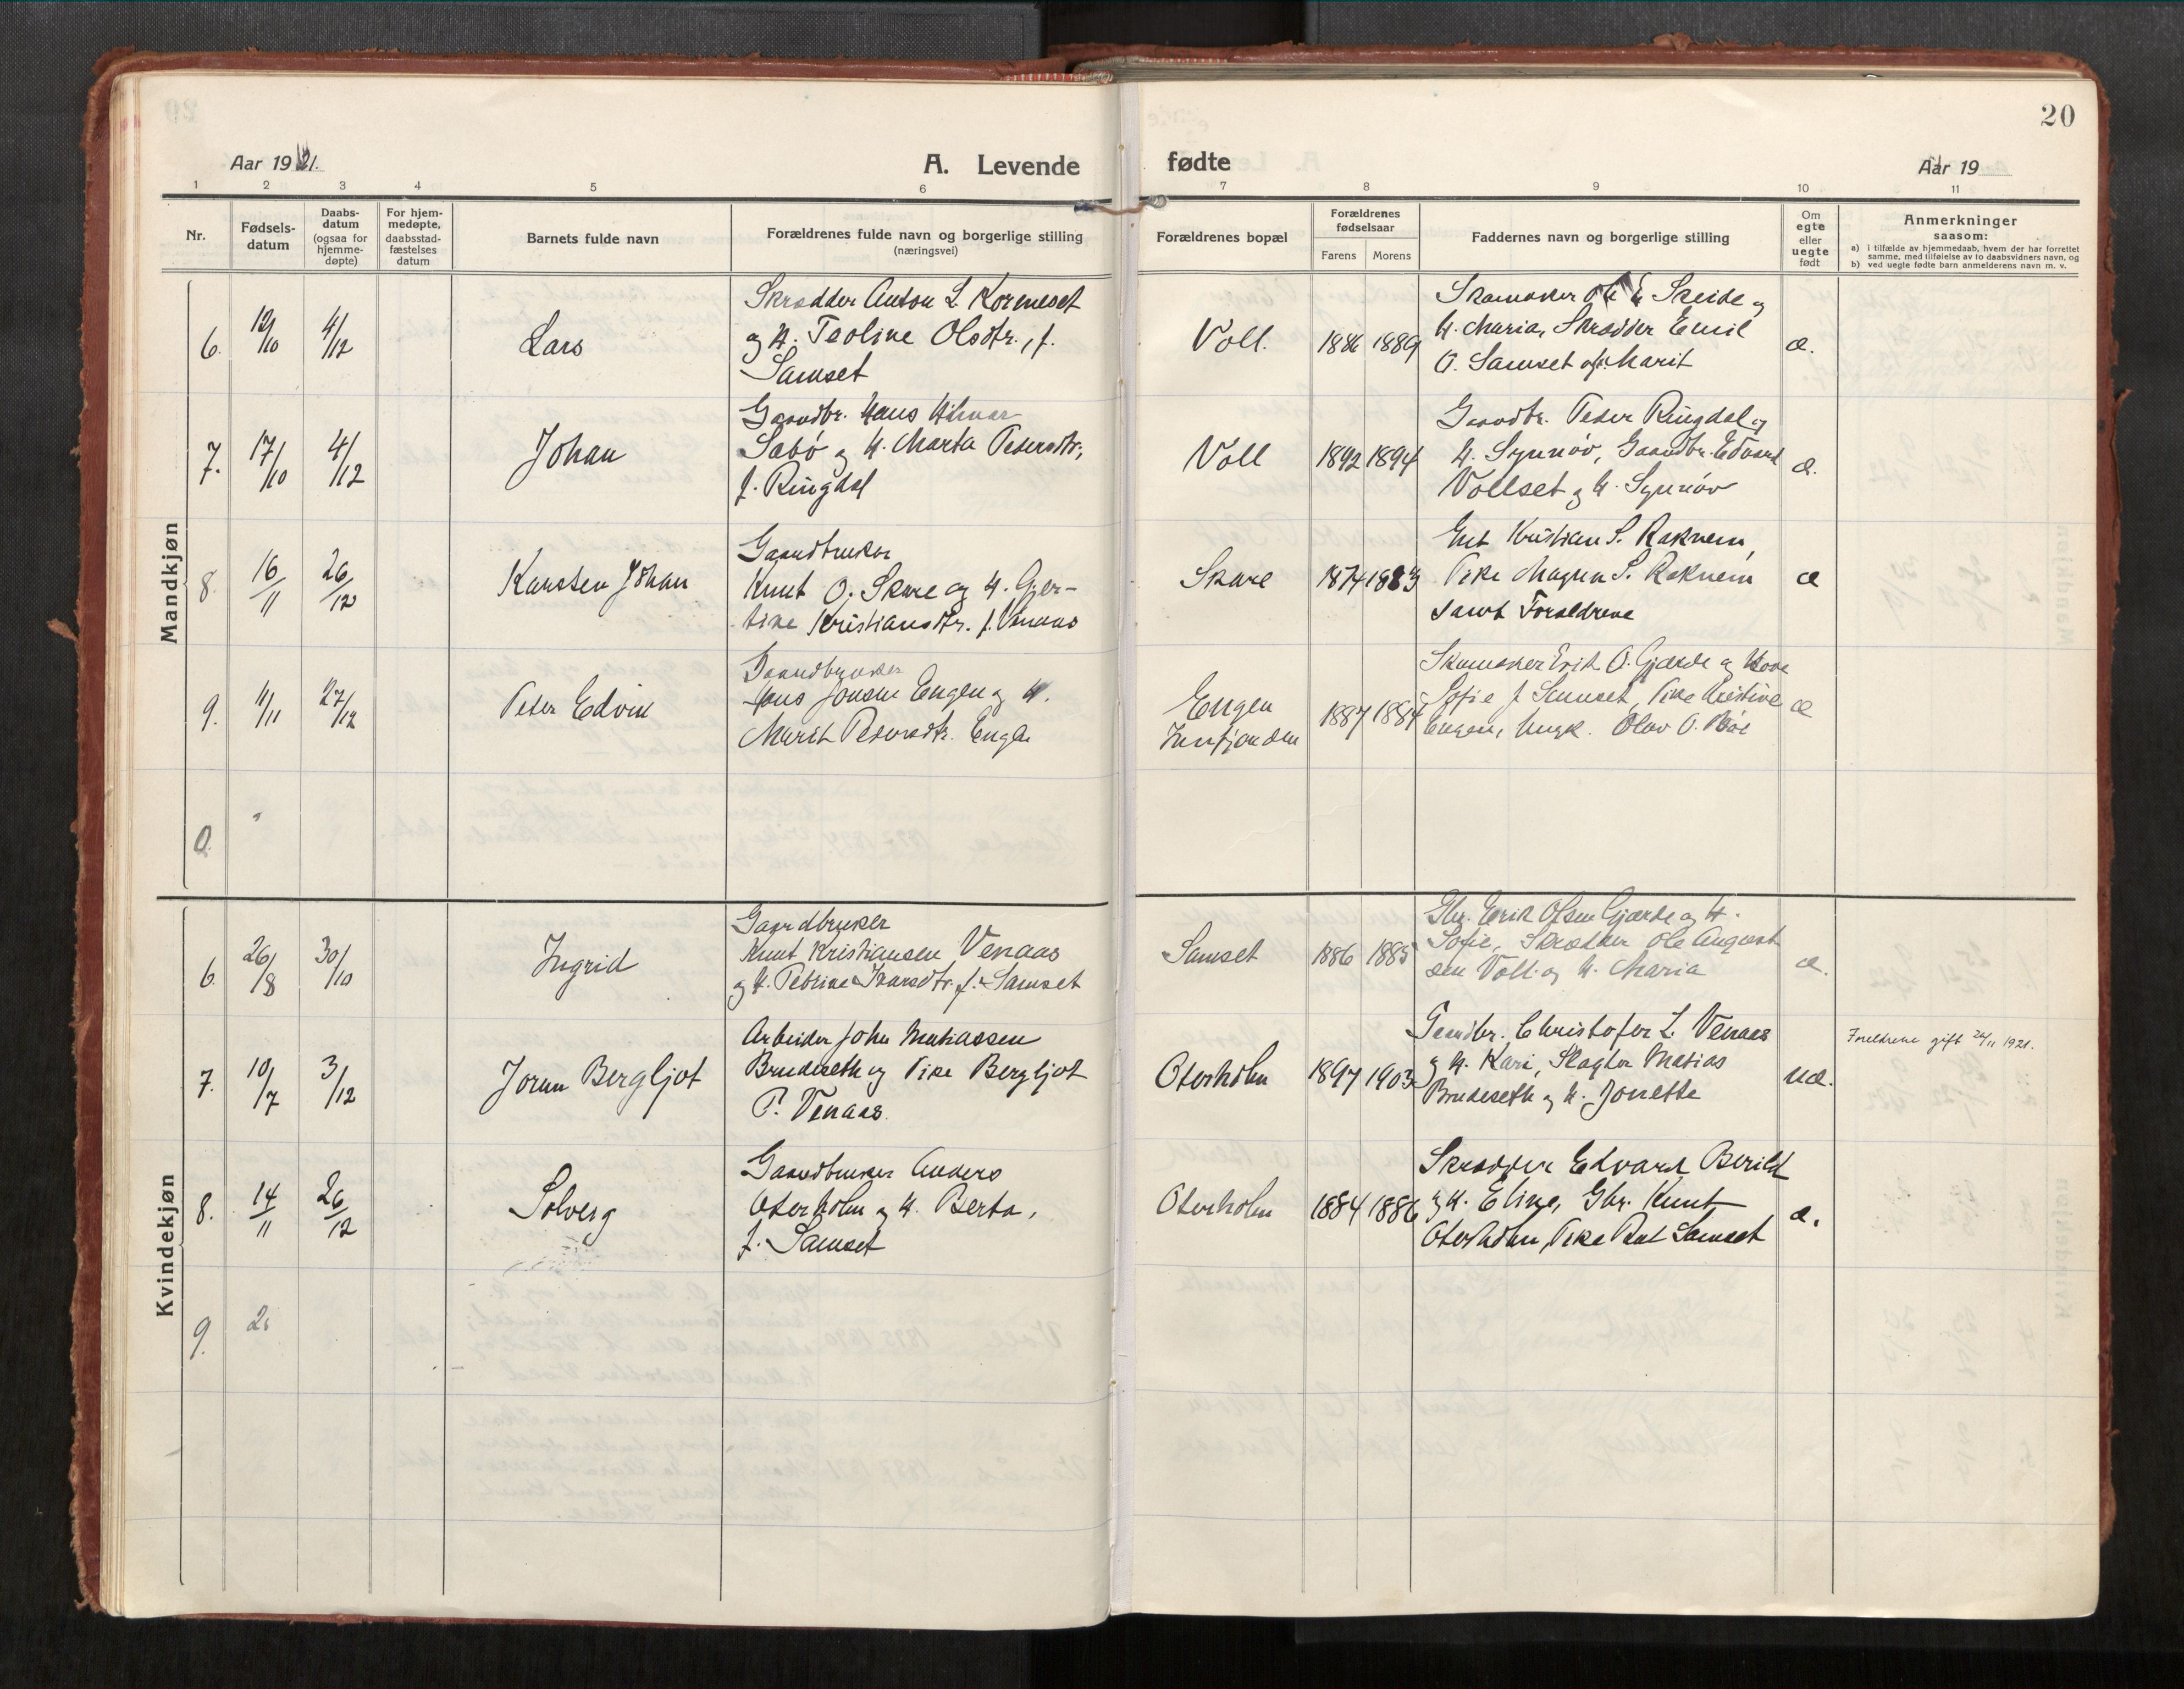 20
Aar 1921.
A. Levende fødte
Aar 19
1 2 3 4 5 6 7 8 9 10 11
Nr.
Fødsels-
datum
Daabs-
datum
(ogsaa for
hjemme-
døpte)
For hjem-
medøpte,
daabsstad-
fæstelses
datum
Barnets fulde navn
Forældrenes fulde navn og borgerlige stilling
(næringsvei)
Forældrenes bopæl
Forældrenes
fødselsaar
Farens Morens
Faddernes navn og borgerlige stilling
Om
egte
eller
uegte
født
Anmerkninger
saasom:
a) i tilfælde av hjemmedaab, hvem der har forrettet
samme, med tilføielse av to daabsvidners navn, og
b) ved uegte fødte barn anmelderens navn m. v.
Mandkjøn
6. 12/10 4/12
Lars
Skrædder Anton L. Korsneset
og H. Teoline Olsdtr., f.
Samset
Voll.
1886 1889
Skomaker Ole E Skeide og
H. Maria, Skrædder Emil
O. Samset og H. Marit
æ.
7. 17/10 4/12
Johan
Gaardbr. Hans Hilmar
Sabø og H. Marta Pedersdtr.,
f. Ringdal
Voll
1892 1894
Gaardbr. Peder Ringdal og
H. Synnøv, Gaardbr. Edvard
Vollset og H. Synnøv
æ.
8. 16/11 26/12
Karsten Johan
Gaardbruker
Knut O. Skare og H. Gjer-
tine Kristiansdtr. f. Venaas
Skare
1874 1883
Kristian S. Raknem,
Pike Magna S. Raknem
samt Forældrene
æ
9. 11/11 27/12
Peter Edvin
Gaardbruker
Hans Jonsen Engen og H.
Marit Pedersdtr. Engen
Engen
Innfjorden
1887 1884
Skomaker Erik O. Gjærde og Kone
Sofie f. Samset, Pike Kristine
Engen, Ungk. Olav O. Bøe
æ
0.
Kvindekjøn
6. 26/8 30/10
Ingrid
Gaardbruker
Knut Kristiansen Venaas
og H. Petrine Ivarsdtr. f. Samset
Samset
1886 1885
Gbr. Erik Olsen Gjærde og H.
Sofie, Skrædder Ole August-
sen Voll og H. Maria
æ.
7. 10/7 3/12
Jorun Bergljot
Arbeider John Matiassen
Brudeseth og Pike Bergljot
P. Venaas.
Oterholm
1897 1903
Gaardbr. Christofer L. Venaas
og H. Kari, Slagter Matias
Brudeseth og H. Jonette
uæ.
Foreldrene gift 24/11 1921.
8. 14/11 26/12
Solveig
Gaardbruker Anders
Oterholm og H. Berta,
f. Samset
Oterholm
1884 1886
Skrædder Edvard Berild
og H. Eline, Gbr. Knut
Oterholm, Pike Samset
æ.
9. 2